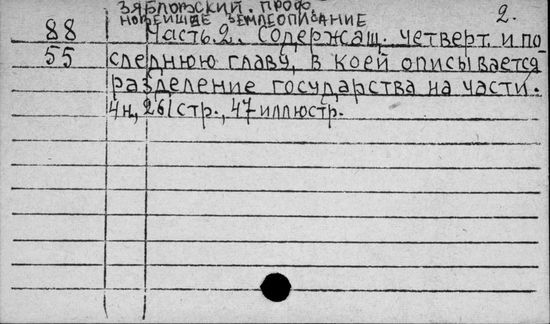 ЗЯБЛОВСКИЙ. ПРОФ. 2.
НОВЕЙШЕЕ ЗЕМЛЕОПИСАНИЕ
88 Часть.2. Содержащ. четверт. и по-
55 следнюю главу, в коей описывается
разделение государства на части.
4н, 261 стр., 47 иллюстр.